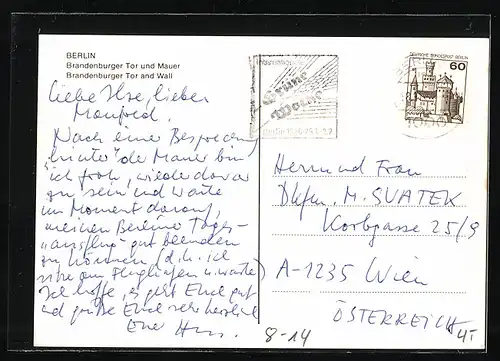 BERLIN
Brandenburger Tor und Mauer
Brandenburger Tor and Wall
Liebe Ilse, lieber
Manfred.
Nach einer Besprechung
hinter der Mauer bin
ich froh, wieder davor
zu sein und warte
im Moment darauf,
meinen Berliner Tages-
"ausflug" gut beenden
zu können (d.h. ich
sitze am Flughafen u. warte)
Ich hoffe, es geht Euch gut
und grüße Euch sehr herzlich
Euer
DEUTSCHE BUNDESPOST BERLIN
60
Grüne
Woche
Herrn und Frau
Dkfm. M. SVATEK
Korbgasse 25/9
A-1235 Wien
ÖSTERREICH
8-14